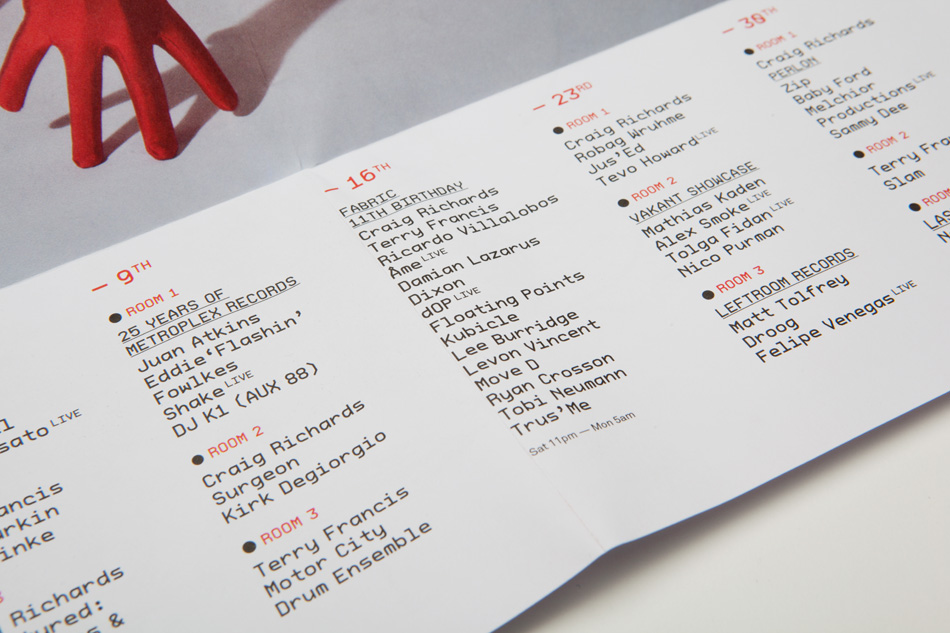 l
sato LIVE
ancis
arkin
inke
Richards
tured:
s &
— 9TH
ROOM 1
25 YEARS OF
METROPLEX RECORDS
Juan Atkins
Eddie‘Flashin’
Fowlkes
Shake LIVE
DJ K1 (AUX 88)
ROOM 2
Craig Richards
Surgeon
Kirk Degiorgio
ROOM 3
Terry Francis
Motor City
Drum Ensemble
— 16TH
FABRIC
11TH BIRTHDAY
Craig Richards
Terry Francis
Ricardo Villalobos
Âme LIVE
Damian Lazarus
Dixon
dOP LIVE
Floating Points
Kubicle
Lee Burridge
Levon Vincent
Move D
Ryan Crosson
Tobi Neumann
Trus’Me
Sat 11pm — Mon 5am
— 23RD
ROOM 1
Craig Richards
Robag Wruhme
Jus’Ed
Tevo Howard LIVE
ROOM 2
VAKANT SHOWCASE
Mathias Kaden
Alex Smoke LIVE
Tolga Fidan LIVE
Nico Purman
ROOM 3
LEFTROOM RECORDS
Matt Tolfrey
Droog
Felipe Venegas LIVE
— 30TH
ROOM 1
Craig Richards
PERLON
Zip
Baby Ford
Melchior
Productions LIVE
Sammy Dee
ROOM 2
Terry Fra
Slam
ROOM
LAS